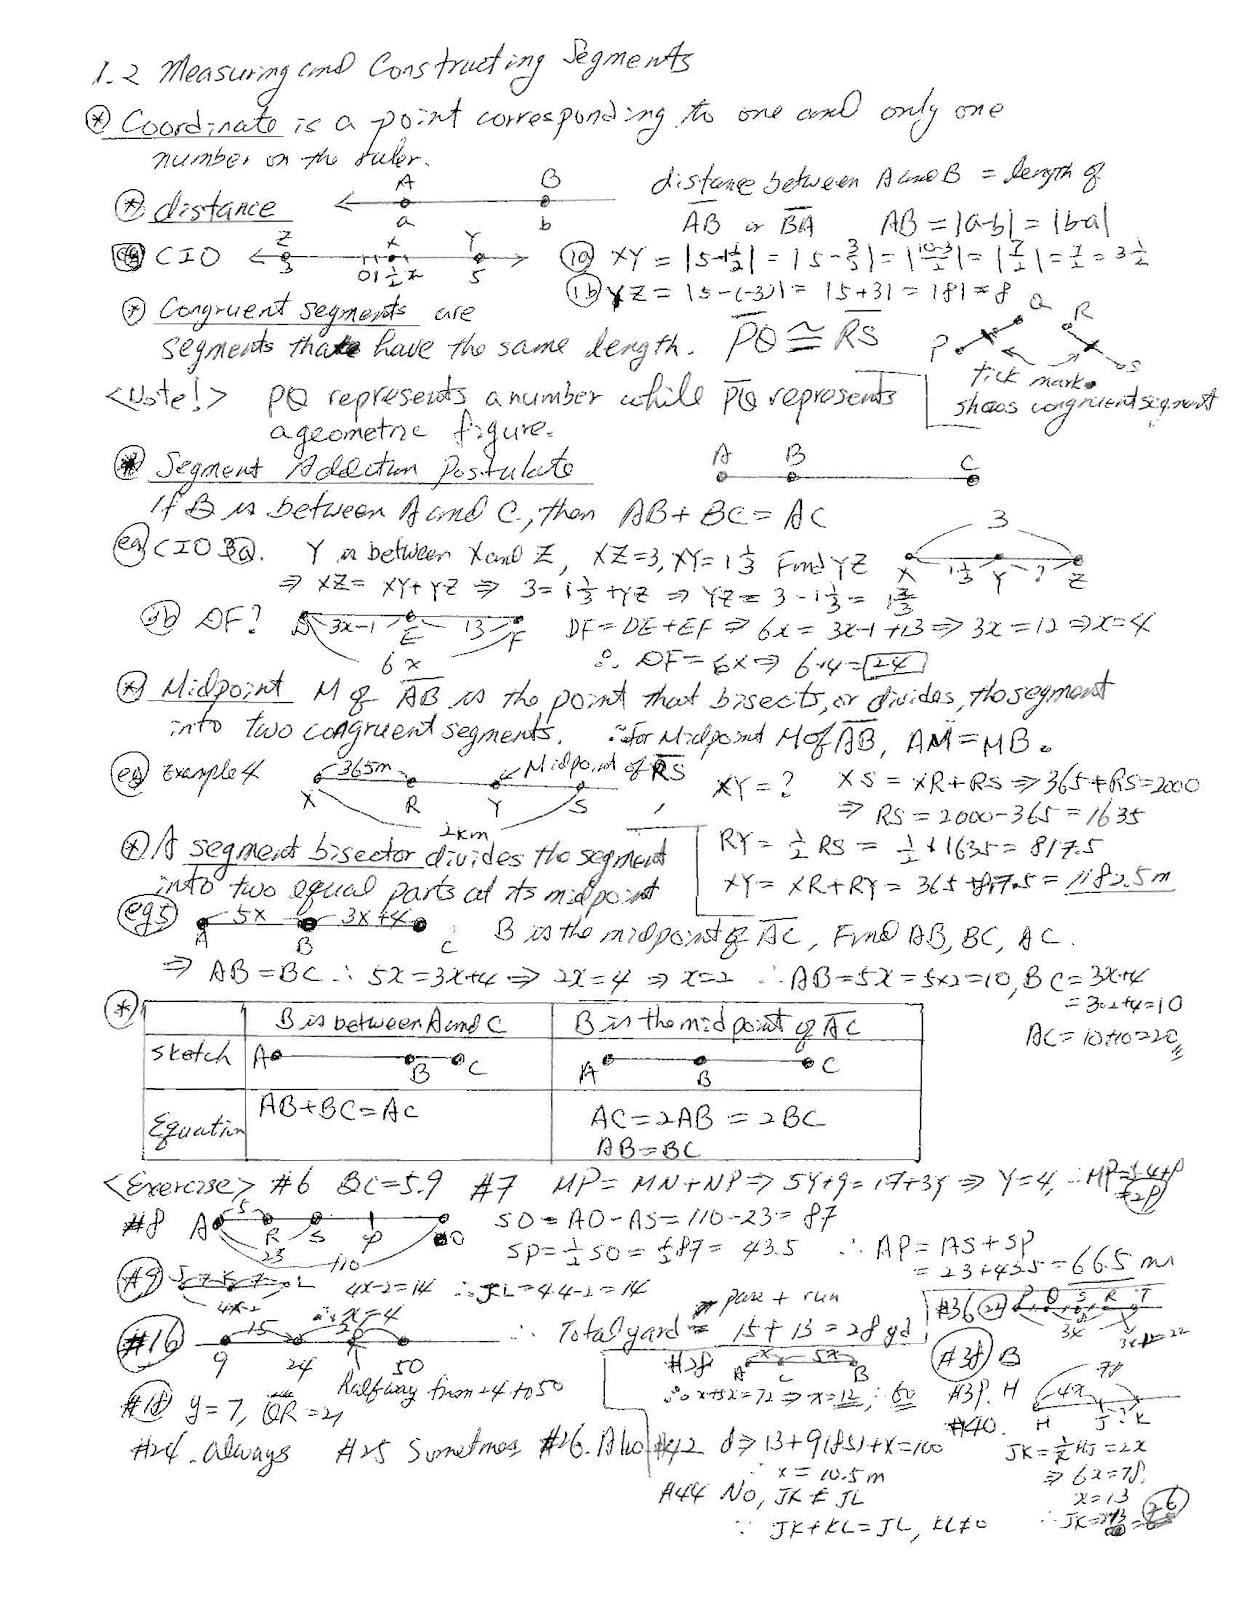 1.2 Measuring and Constructing Segments
* Coordinate is a point corresponding to one and only one
number on the ruler.
* distance
A B
a b
distance between A and B = length of
AB or BA AB = |a-b| = |b-a|
CIO
Z X Y
5
1a XY = |5-1½| = |5-3/2| = |10-3/2| = |7/2| = 7/2 = 3½
1b YZ = |5-(-3)| = |5+3| = |8| = 8
* Congruent segments are
segments that have the same length. PQ ≅ RS
P Q R S
tick mark
shows congruent segment
<Note!> PQ represents a number while PQ represents
a geometric figure.
* Segment Addition Postulate
A B C
If B is between A and C, then AB + BC = AC
eg CIO 3a. Y is between X and Z, XZ=3, XY=1⅓ Find YZ
3
X 1⅓ Y ? Z
⇒ XZ = XY+YZ ⇒ 3 = 1⅓ + YZ ⇒ YZ = 3 - 1⅓ = 1⅔
3b DF? D 3x-1 E 13 F
6x
DF = DE+EF ⇒ 6x = 3x-1+13 ⇒ 3x = 12 ⇒ x=4
∴ DF = 6x ⇒ 6·4 = 24
* Midpoint M of AB is the point that bisects, or divides, the segment
into two congruent segments. ∴ for Midpoint M of AB, AM = MB.
eg Example 4 365m Midpoint of RS
X R Y S
2km
XY = ? XS = XR+RS ⇒ 365+RS=2000
⇒ RS = 2000-365 = 1635
RY = ½ RS = ½ · 1635 = 817.5
XY = XR+RY = 365+817.5 = 1182.5m
* A segment bisector divides the segment
into two equal parts at its midpoint
eg5 5x 3x+4
A B C
B is the midpoint of AC, Find AB, BC, AC.
⇒ AB = BC ∴ 5x = 3x+4 ⇒ 2x = 4 ⇒ x=2 ∴ AB = 5x = 5×2 = 10, BC = 3x+4
= 3·2+4=10
AC = 10+10=20
* B is between A and C B is the midpoint of AC
Sketch A B C A B C
Equation AB+BC=AC AC = 2AB = 2BC
AB = BC
<Exercise> #6 BC=5.9 #7 MP = MN+NP ⇒ 5Y+9 = 17+3y ⇒ Y=4, ∴ MP=
#8 A 5 R S P D
23
110
SD = AD-AS = 110-23 = 87
SP = ½ SD = ½ 87 = 43.5 ∴ AP = AS+SP
= 23+43.5 = 66.5 m
#9 J 7 K 7 L
4x-2
4x-2=14 ∴ JL=4·4-2=14
∴ x=4
#16 15 26
9 24 50
Halfway from 24 to 50
pass + run
∴ Total yard = 15 + 13 = 28 yd
#18 y = 7, QR = 21
#24. always #25 Sometimes #26. Also
#28 x 5x
A C B
∴ x+5x=72 ⇒ x=12, 60
#36 22 P Q S R T
3x
#38 B
#39. H
#40.
78
4x
H J K
JK = ½ HJ = 2x
⇒ 6x=78
x=13
∴ JK = 26
#42 d ⇒ 13+9(8.5)+x=100
x = 10.5 m
#44 No, JK ≠ JL
∵ JK+KL=JL, KL≠0